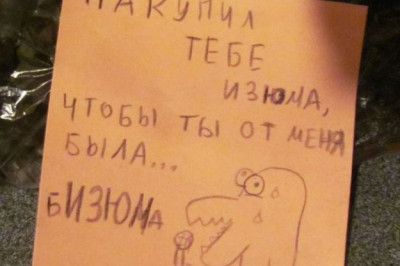 НАКУПИЛ
ТЕБЕ
ИЗЮМА,
ЧТОБЫ ТЫ ОТ МЕНЯ
БЫЛА...
БИЗЮМА